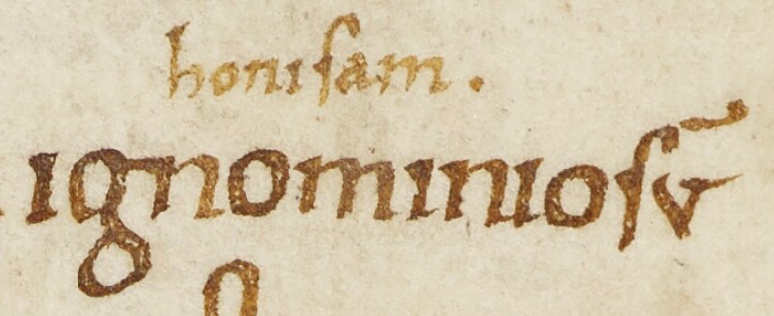 honisam.
ignominiosv̄